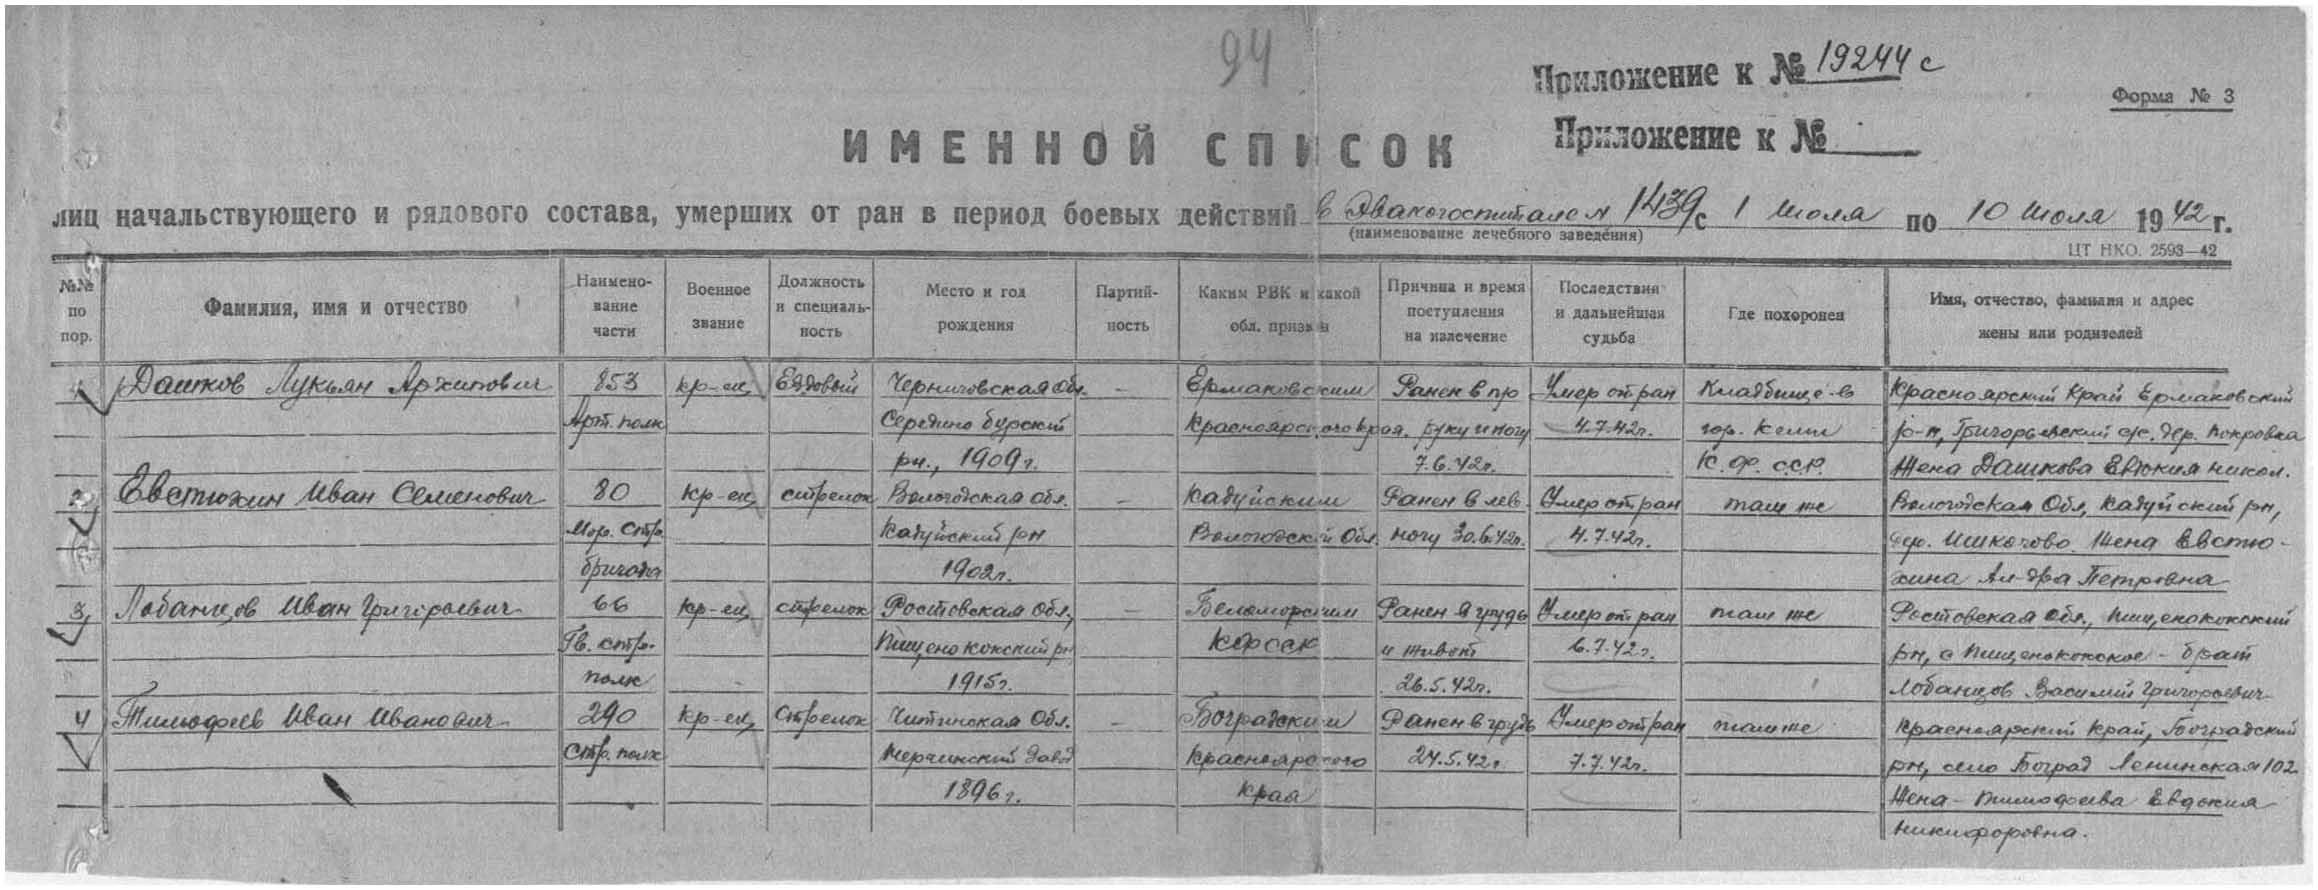 94
Приложение к № 19244 с
Форма № 3
ИМЕННОЙ СПИСОК
Приложение к №
лиц начальствующего и рядового состава, умерших от ран в период боевых действий в Эвакогоспитале № 1439 с 1 июля по 10 июля 1942 г.
(наименование лечебного заведения)
ЦТ НКО. 2593—42
№№ по пор.
Фамилия, имя и отчество
Наимено-вание части
Военное звание
Должность и специаль-ность
Место и год рождения
Партий-ность
Каким РВК и какой обл. призван
Причина и время поступления на излечение
Последствия и дальнейшая судьба
Где похоронен
Имя, отчество, фамилия и адрес жены или родителей
1 Дашков Лукьян Архипович 853 кр-ец Ездовый Черниговская обл. — Ермаковским Ранен в пр Умер от ран Кладбище в Красноярский Край Ермаковский
Арт. полк Середино бурский Красноярского края. руку и ногу 4.7.42г. гор. Кеми р-н, Григорьевский с/с. дер. Покровка
рн., 1909г. 7.6.42г. К.Ф.С.С.Р. Жена Дашкова Евдокия Никол.
2 Евстюхин Иван Семенович 80 кр-ец стрелок Вологодская обл. — Кадуйским Ранен в лев. Умер от ран там же Вологодская Обл, Кадуйский рн,
Мор. стр. Кадуйский рн Вологодской Обл. ногу 30.6.42г. 4.7.42г. дер. Ишкочово. Жена Евстю-
бригада 1902г. хина Ал-дра Петровна
3 Лобанцов Иван Григорьевич 66 кр-ец стрелок Ростовская обл., — Беломорским Ранен в грудь Умер от ран там же Ростовская обл., Пищенококский
Гв. стр. Пищенококский рн КФССР и живот 6.7.42г. рн, с Пищенококское - брат
полк 1915г. 26.5.42г. Лобанцов Василий Григорьевич
4 Тимофеев Иван Иванович 290 кр-ец Стрелок Читинская Обл. — Боградским Ранен в грудь Умер от ран там же Красноярский край, Боградский
Стр. полк Нерчинский Завод Красноярского 24.5.42г. 7.7.42г. рн, село Боград Ленинская 102
1896г. Края Жена - Тимофеева Евдокия
Никифоровна.